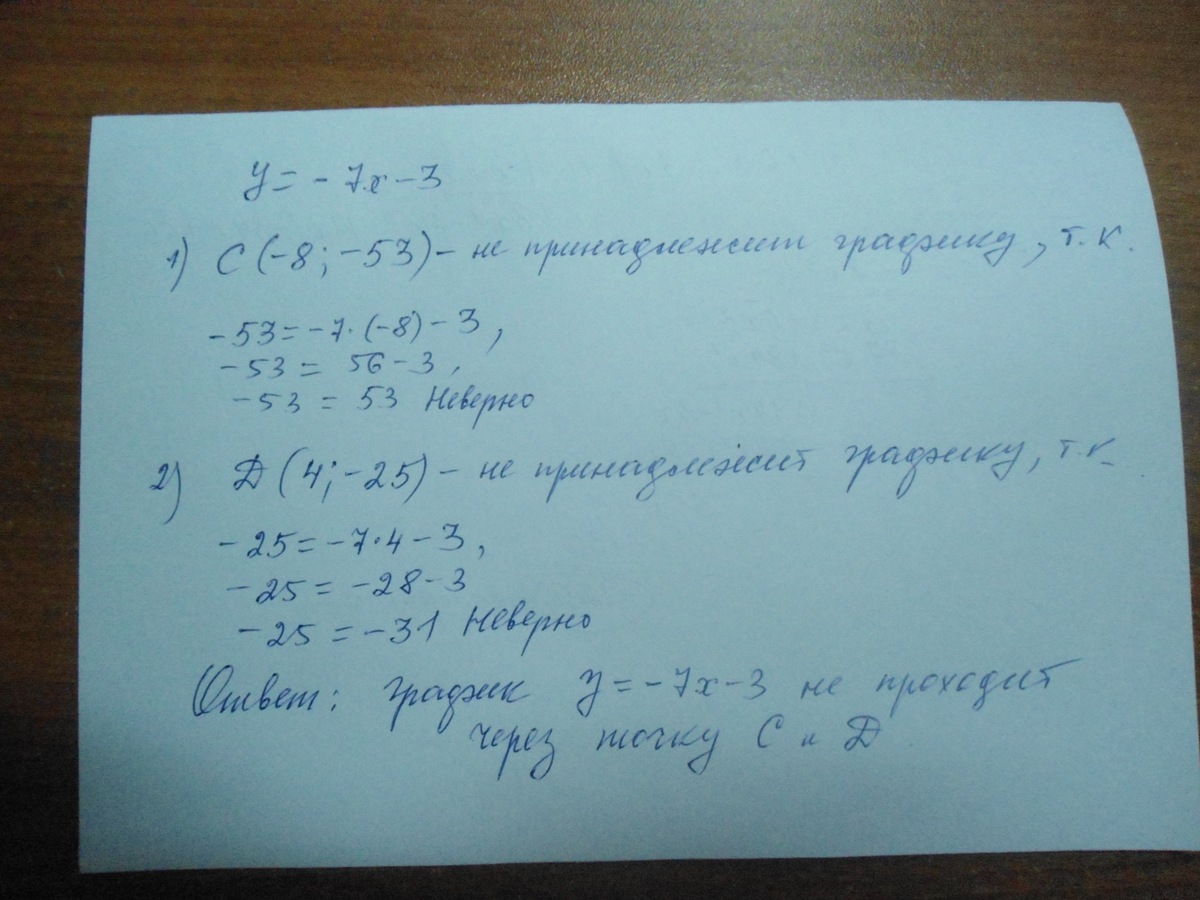 y = -7x-3
1) С (-8; -53) - не принадлежит графику, т.к.
-53 = -7·(-8) - 3,
-53 = 56 - 3,
-53 = 53 Неверно
2) Д (4; -25) - не принадлежит графику, т.к.
-25 = -7·4 - 3,
-25 = -28 - 3
-25 = -31 Неверно
Ответ: график y = -7x-3 не проходит
через точку С и Д